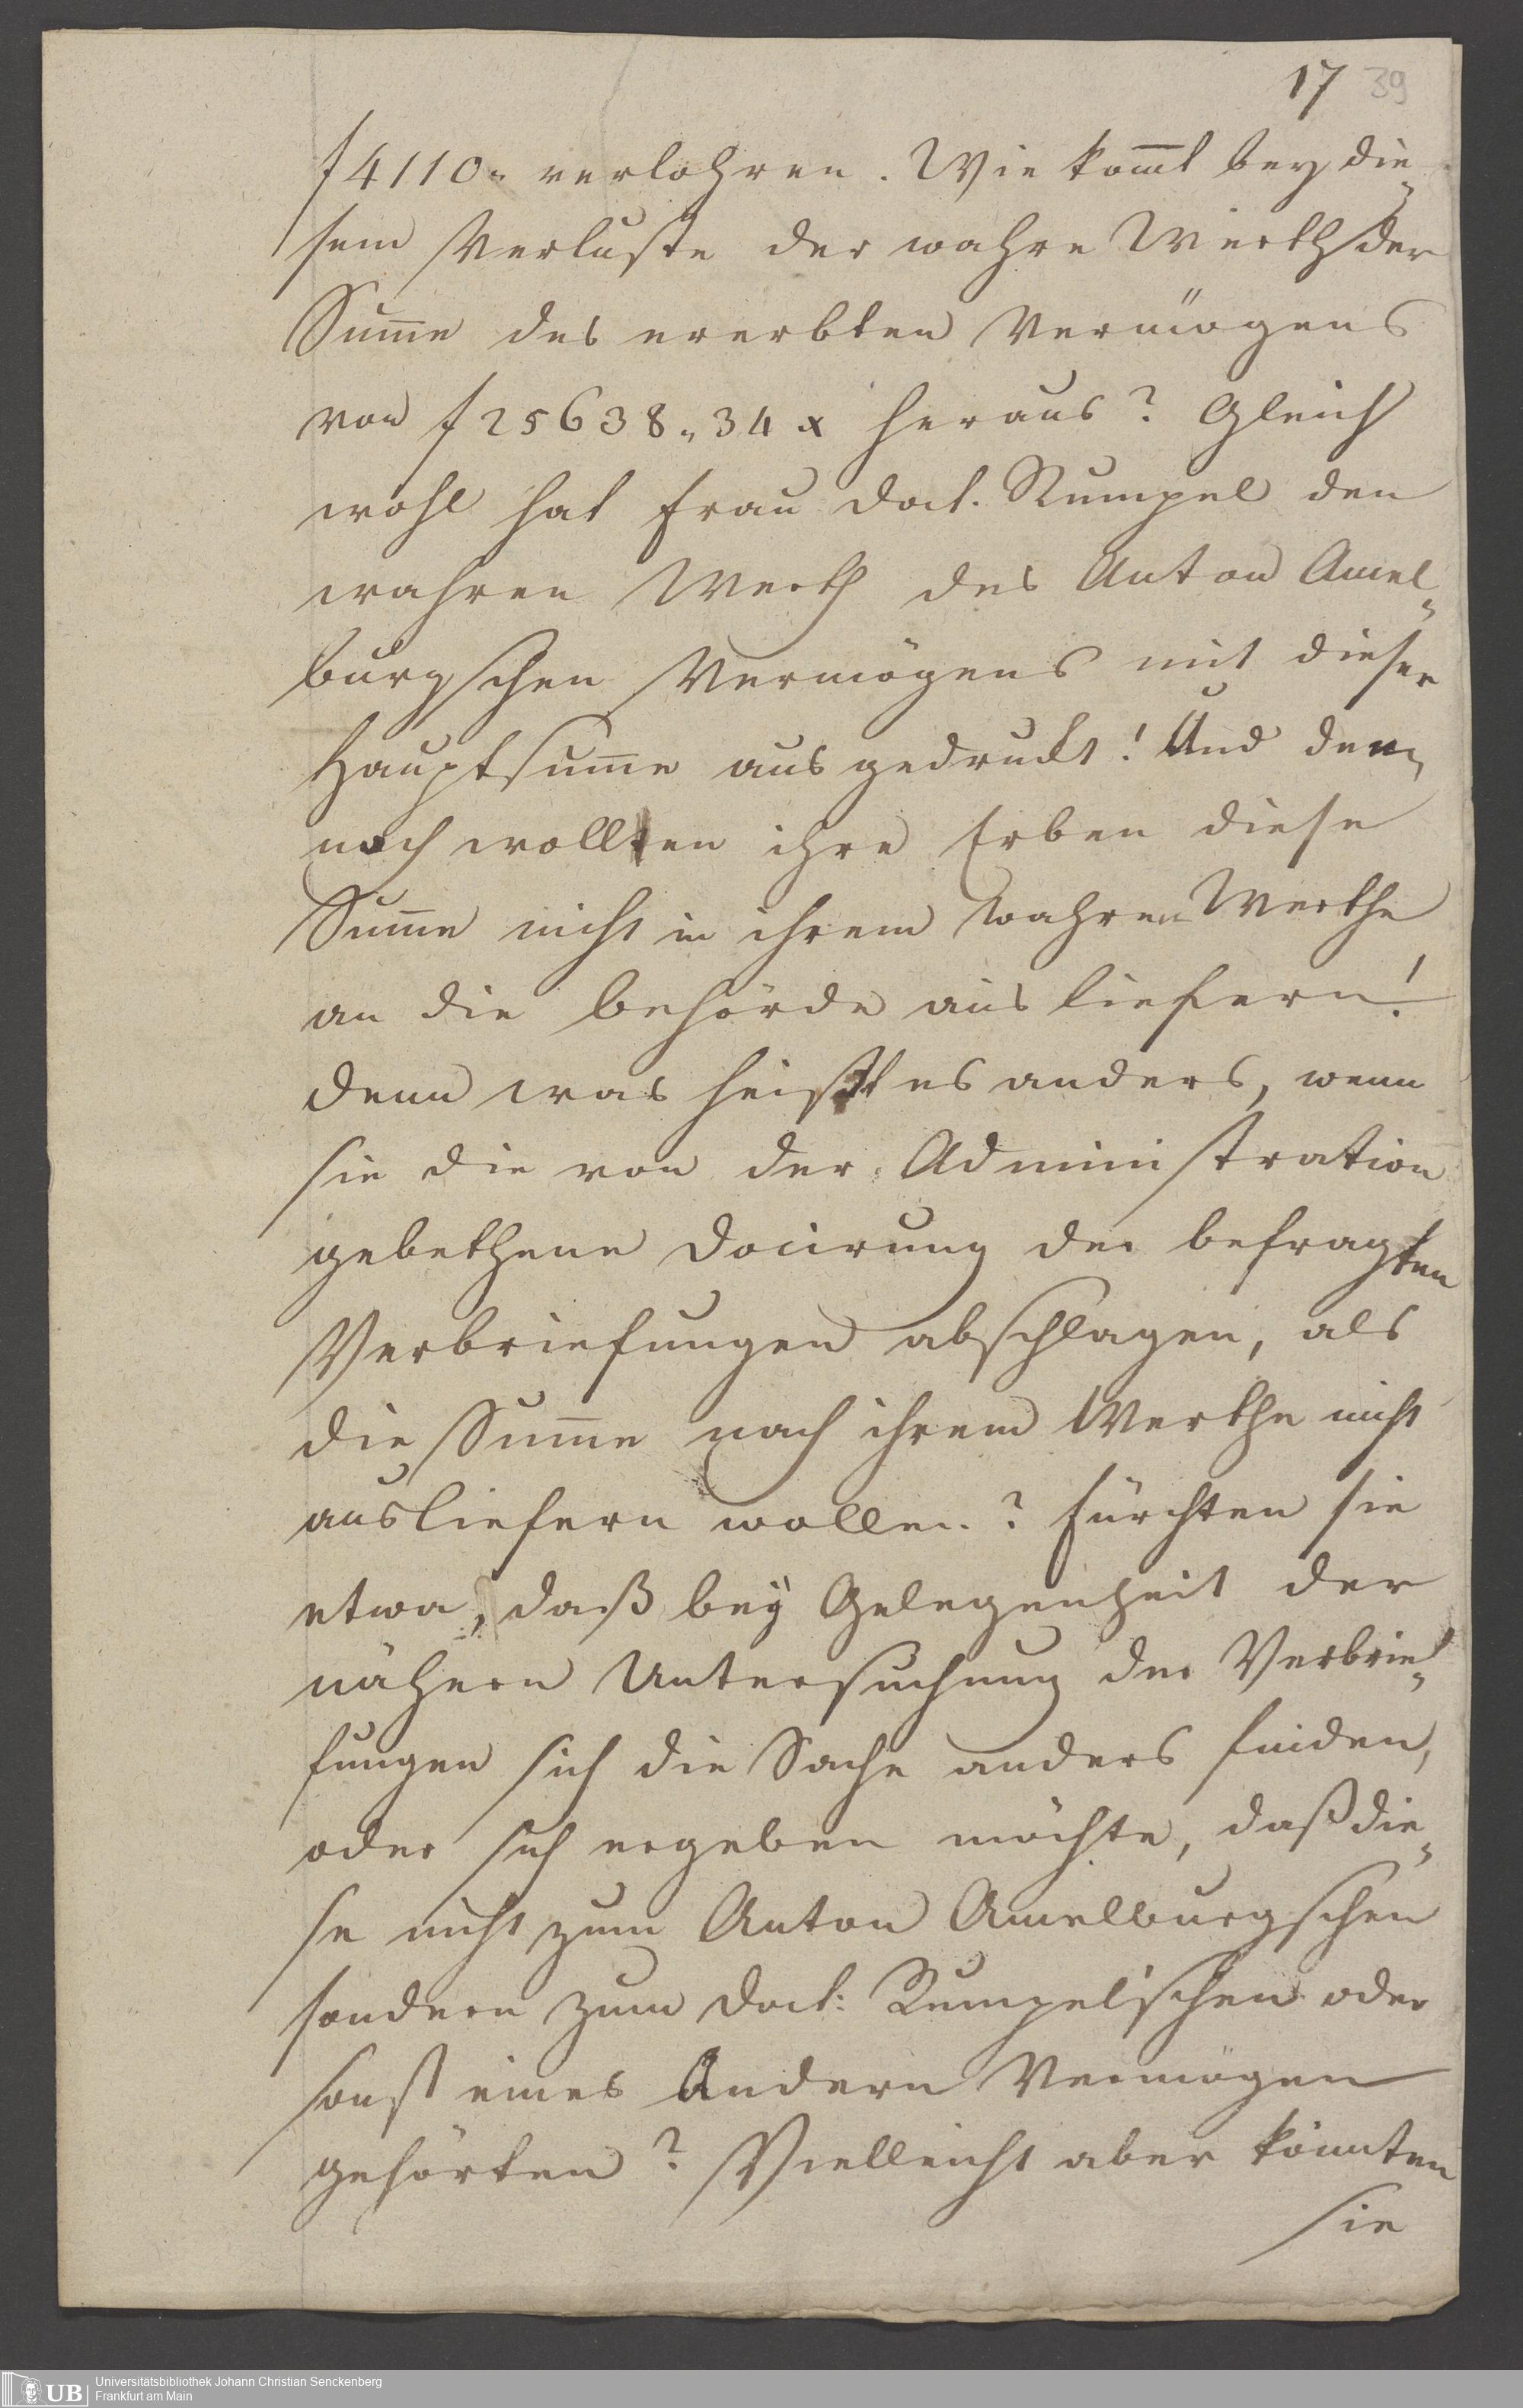 17 39
f 4110„ verlohren. Wie kom̅t bey die„
sem Verluste der wahre Werth der
Sum̅e des ererbten Vermögens
von f 25638„34 x heraus? Gleich
wohl hat Frau Doct. Rumpel den
wahren Werth des Anton Amel„
burgschen Vermögens mit dieser
Hauptsum̅e ausgedruckt! Und den„
noch wollten ihre Erben diese
Sum̅e nicht in ihrem wahren Werthe
an die Behörde ausliefern!
Denn was heist es anders, wenn
sie die von der Administration
gebethene Docirung der befragten
Verbriefungen abschlagen, als
die Sum̅e nach ihrem Werthe nicht
ausliefern wollen? Fürchten sie
etwa, daß bey Gelegenheit der
nähern Untersuchung der Verbrie„
fungen sich die Sache anders finden,
oder sich ergeben möchte, daß die„
se nicht zum Anton Amelburgschen
sondern zum Doct: Rumpel'schen oder
sonst eines Andern Vermögen
gehörten? Vielleicht aber könnten
sie
UB
Universitätsbibliothek Johann Christian Senckenberg
Frankfurt am Main